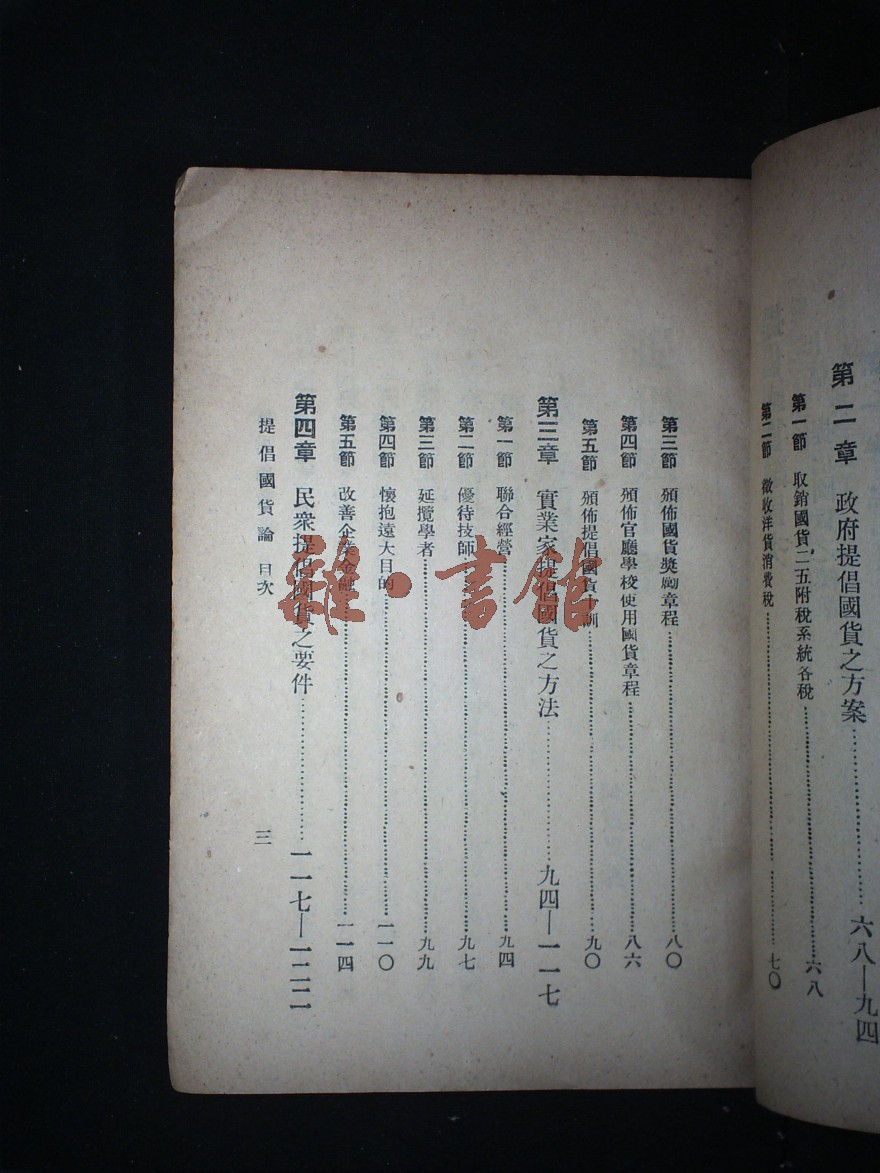 第二章 政府提倡國貨之方案……六八—九四
第一節 取銷國貨二五附稅系統各稅……六八
第二節 徵收洋貨消費稅……七〇
第三節 頒佈國貨獎勵章程……八〇
第四節 頒佈官廳學校使用國貨章程……八六
第五節 頒佈提倡國貨十訓……九〇
第三章 實業家提倡國貨之方法……九四—一一七
第一節 聯合經營……九四
第二節 優待技師……九七
第三節 延攬學者……九九
第四節 懷抱遠大目的……一一〇
第五節 改善企業金融……一一四
第四章 民衆提倡國貨之要件……一一七—一二二
提倡國貨論 目次
三
雜·書館